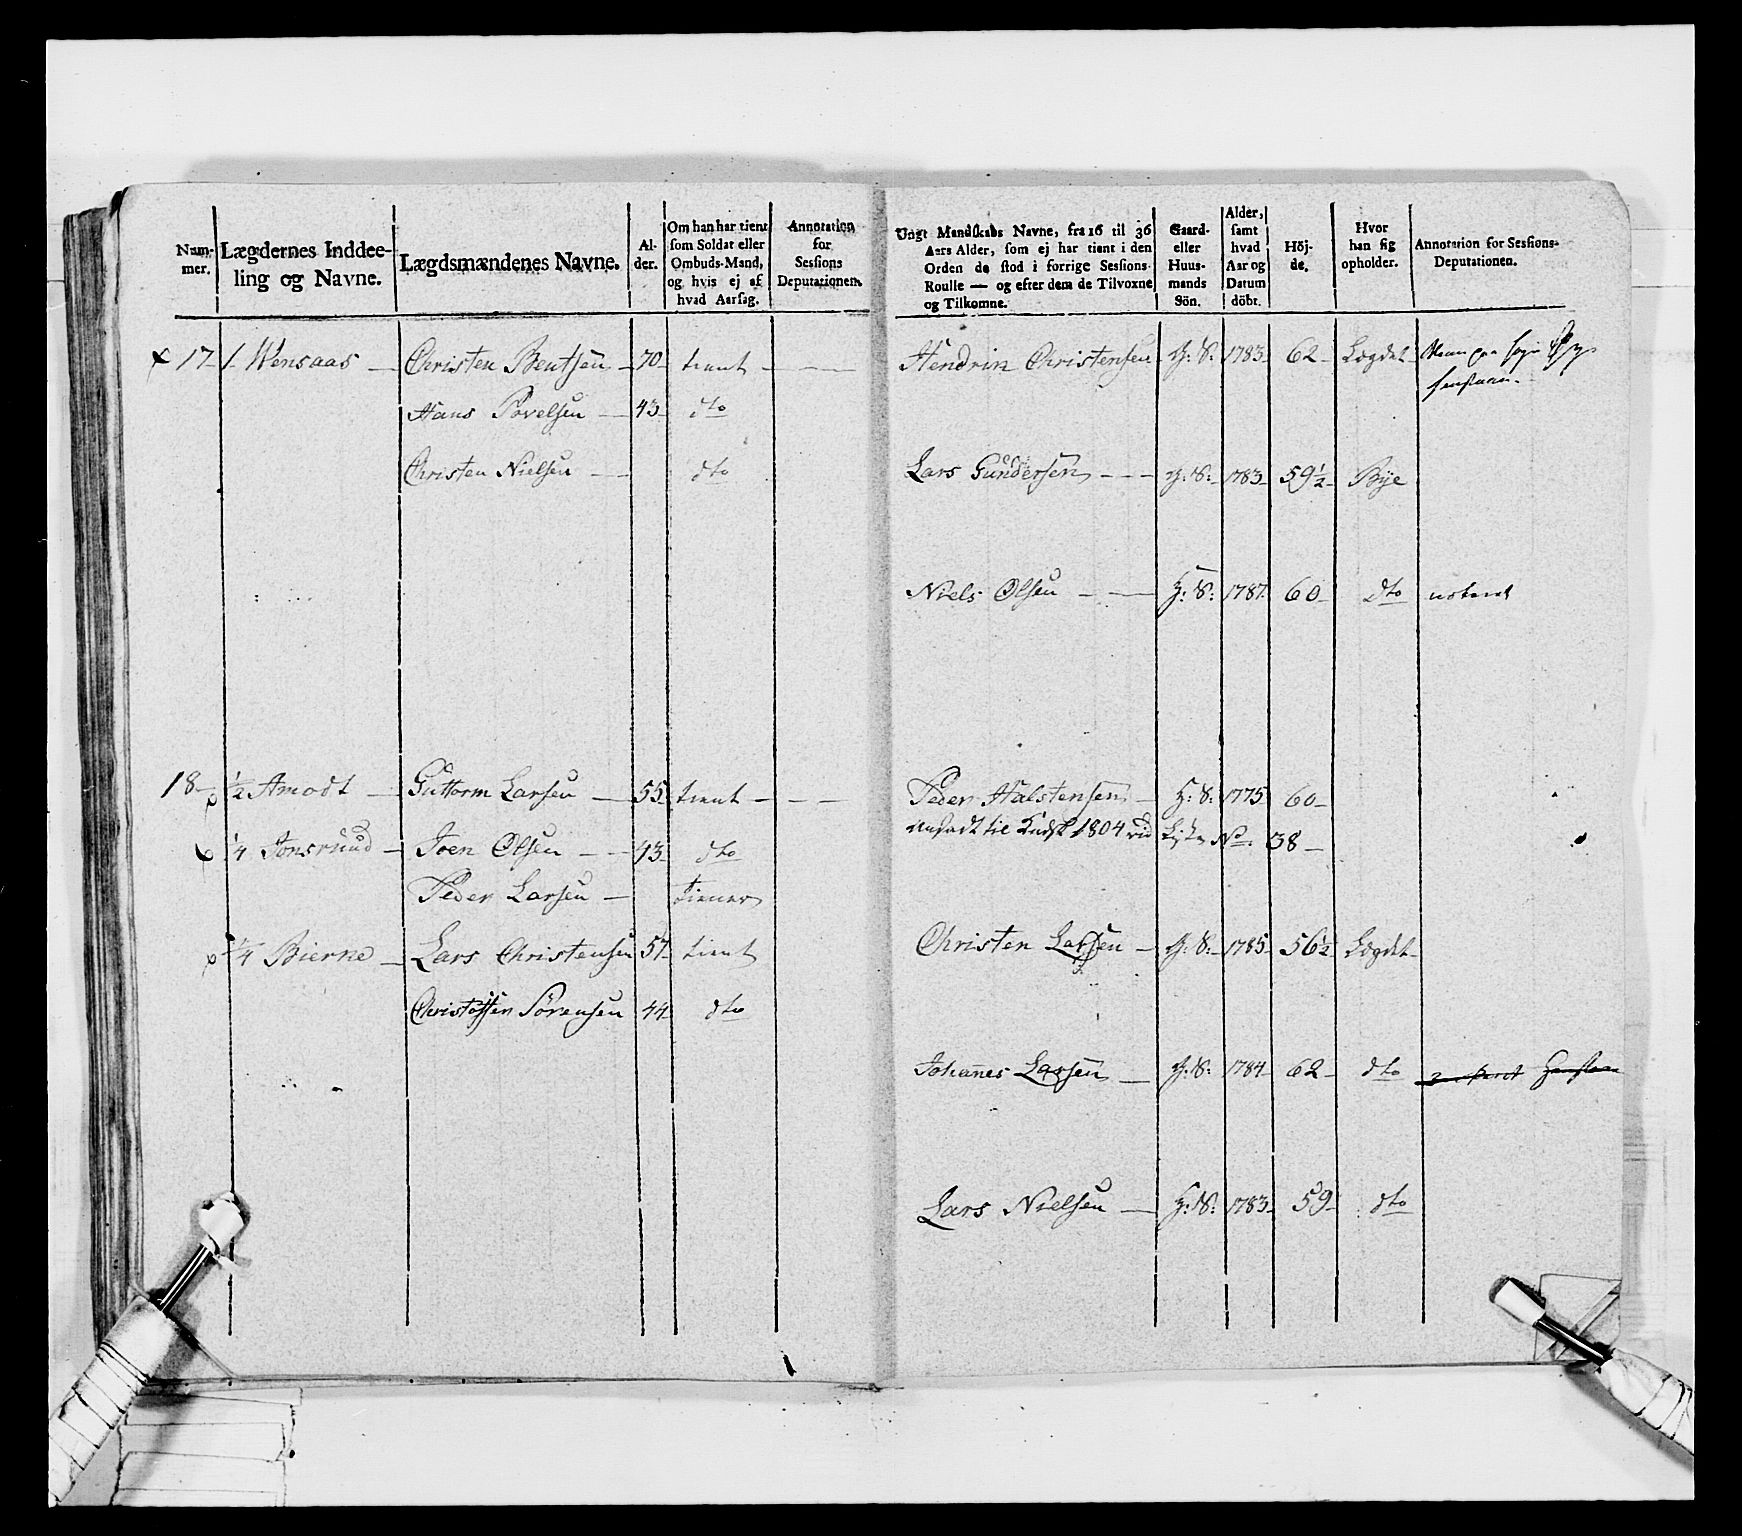 Num-
mer.
Lægdernes Inddee-
ling og Navne.
Lægdsmændenes Navne.
Al-
der.
Om han har tient
som Soldat eller
Ombuds-Mand,
og hvis ej af
hvad Aarsag.
Annotation
for
Sessions
Deputationen.
17 1 Wensaas Christen Bentsen 70 tient
Hans Povelsen 43 dto
Christen Nielsen dto
18 1/2 Amodt Guttorm Larsen 55 tient
1/4 Jonsruud Joen Olsen 43 dto
Peder Larsen tiener
1/4 Bierke Lars Christensen 57 tient
Christoffer Sörensen 44 dto
Ungt Mandskabs Navne, fra 16 til 36
Aars Alder, som ej har tient i den
Orden de stod i forrige Sessions-
Roulle — og efter dem de Tilvoxne
og Tilkomne.
Gaard-
eller
Huus-
mands
Sön.
Alder,
samt
hvad
Aar og
Datum
döbt.
Höj-
de.
Hvor
han sig
opholder.
Annotation for Sessions-
Deputationen.
Hendrik Christensen G: S: 1783 62 Lægdet
Lars Gundersen G: S: 1783 59 1/2 Bye
Niels Olsen H: S: 1787 60 dto noteret
Peder Halstensen H: S: 1775 60
ansadt til Kudsk 1804 vid Liste No 38
Christen Larsen G: S: 1785 56 1/2 Lægdet
Johannes Larsen G: S: 1784 62 dto
Lars Nielsen H: S: 1783 59 dto